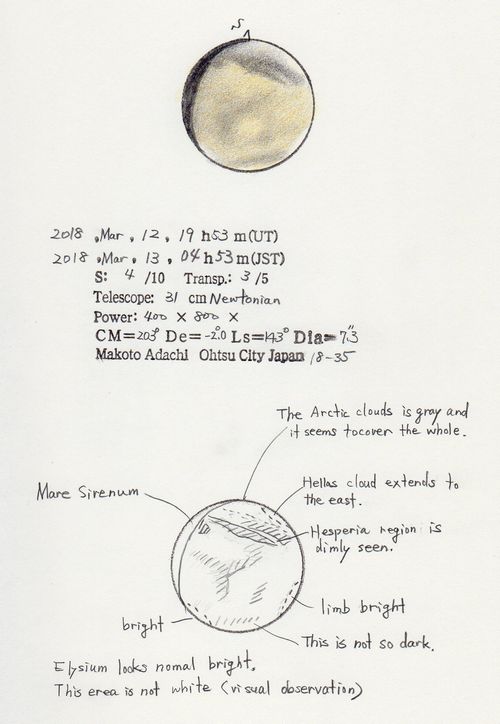 S
2018 , Mar , 12 , 19 h 53 m (UT)
2018 , Mar , 13 , 04 h 53 m (JST)
S: 4 /10 Transp.: 3 /5
Telescope: 31 cm Newtonian
Power: 400 × 800 ×
CM=203° De=-2.°0 Ls=143° Dia=7.″3
Makoto Adachi Ohtsu City Japan 18-35
The Arctic clouds is gray and
it seems to cover the whole.
Hellas cloud extends to
the east.
Mare Sirenum
Hesperia region is
dimly seen.
limb bright
bright
This is not so dark.
Elysium looks nomal bright.
This erea is not white (visual observation)